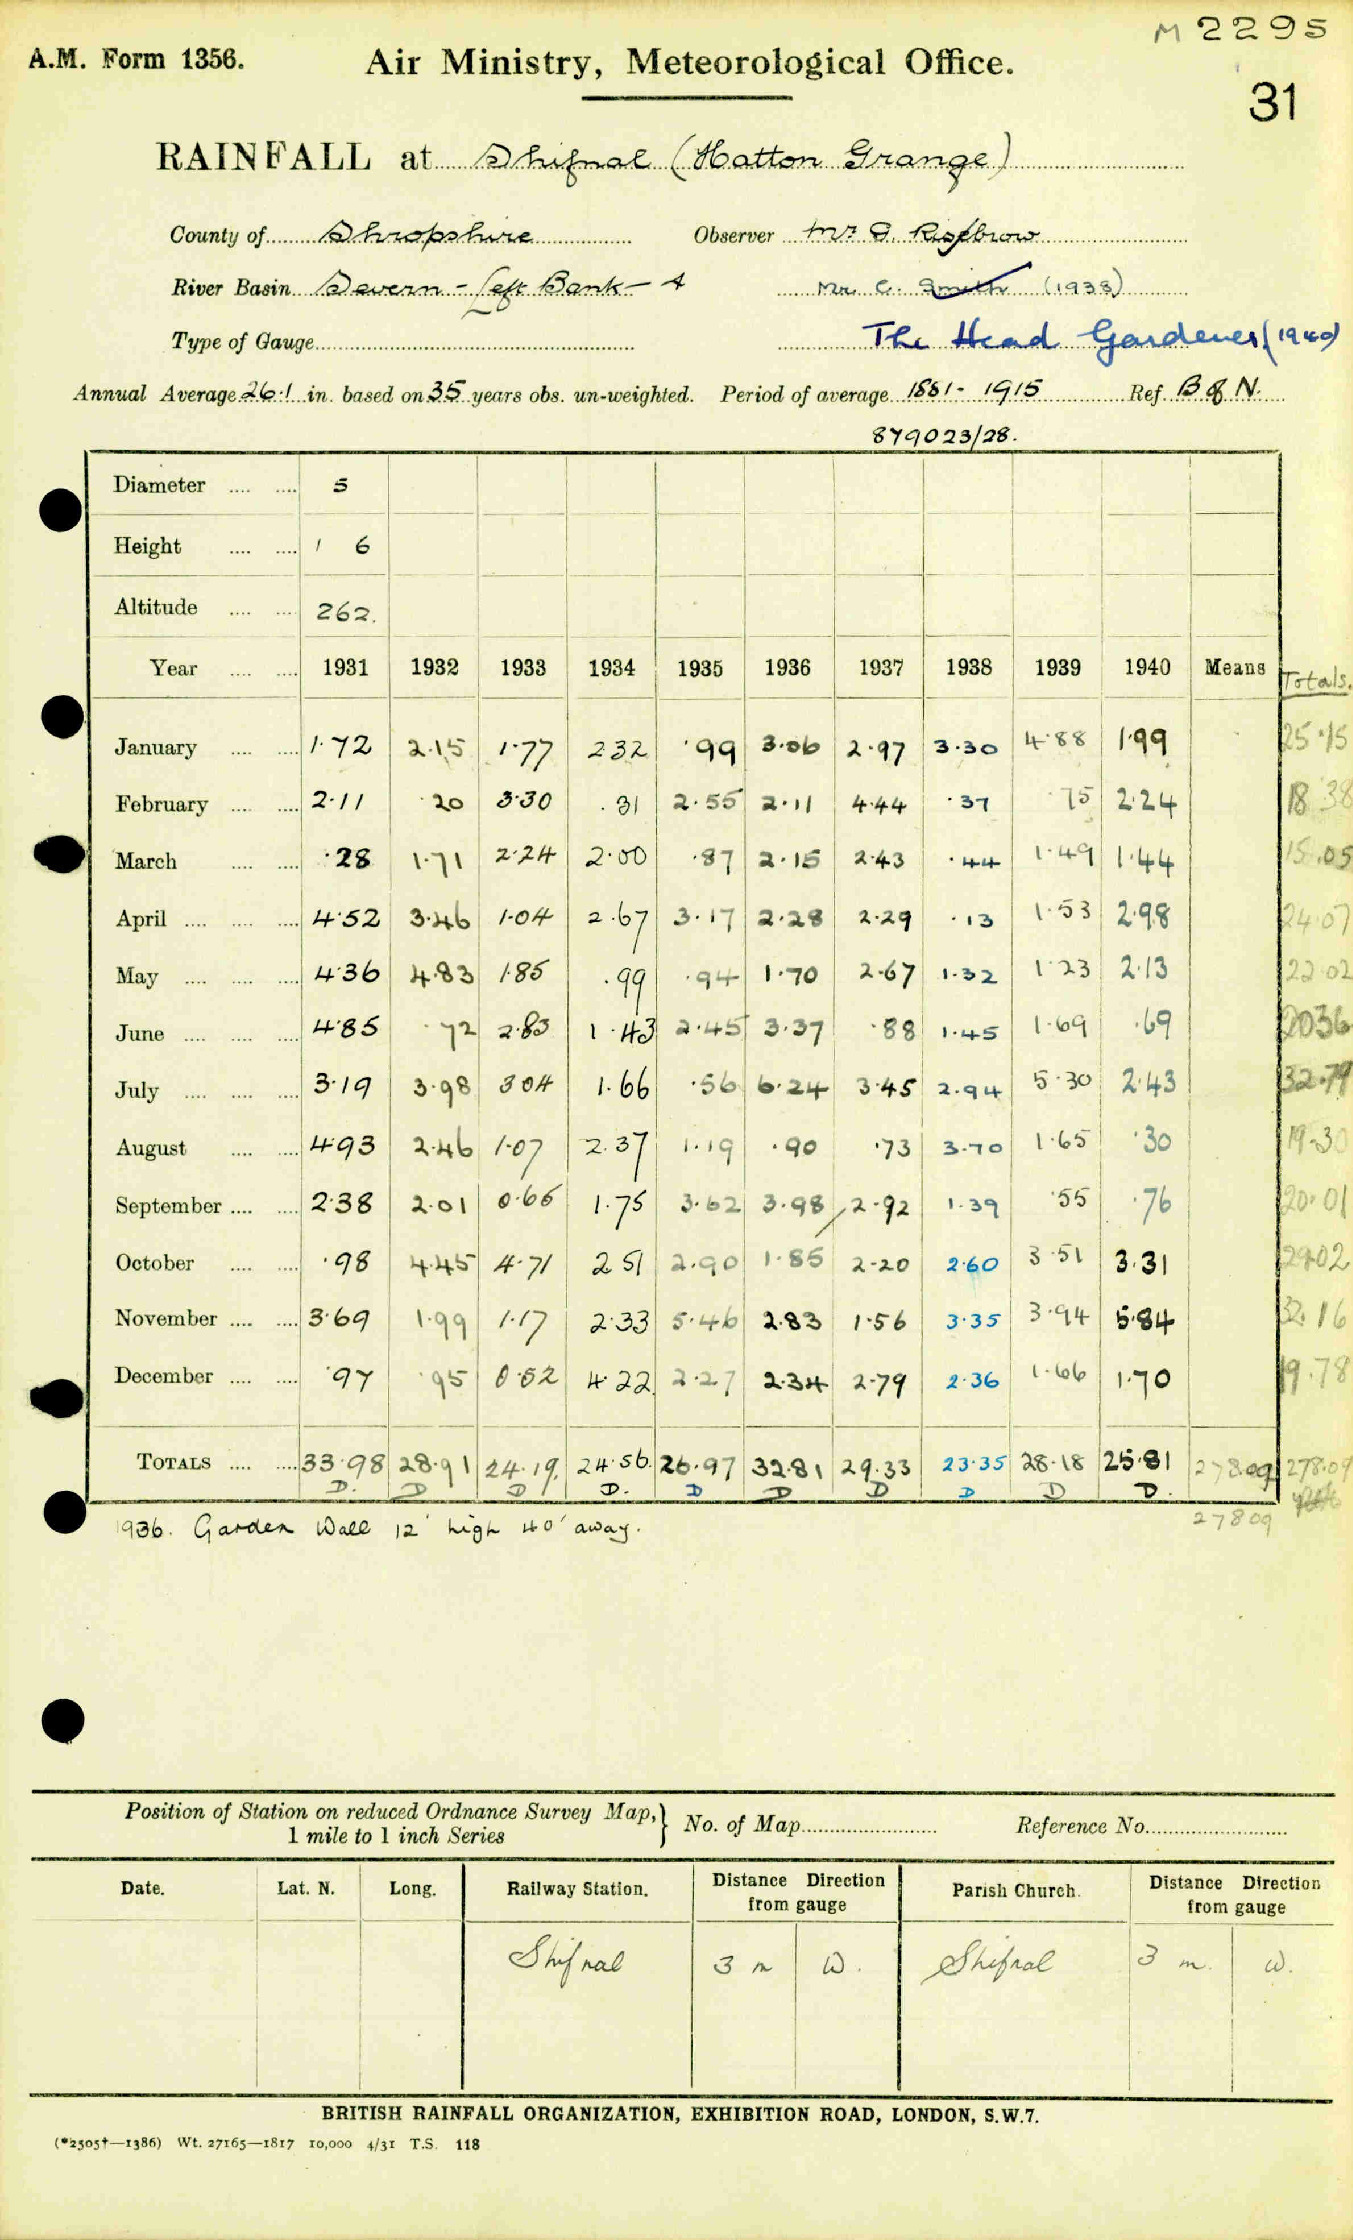 M 2295
A.M. Form 1356. Air Ministry, Meteorological Office.
31
RAINFALL at Shifnal (Hatton Grange)
County of Shropshire Observer Mr G. Risebrow
River Basin Severn - Left Bank - A Mr. C. Smith (1938)
Type of Gauge The Head Gardener (1940)
Annual Average 26.1 in. based on 35 years obs. un-weighted. Period of average 1881 - 1915 Ref. B of N.
879023/28.
Diameter 5
Height 1 6
Altitude 262.
Year 1931 1932 1933 1934 1935 1936 1937 1938 1939 1940 Means Totals.
January 1.72 2.15 1.77 2.32 .99 3.06 2.97 3.30 4.88 1.99 25.15
February 2.11 .20 3.30 .31 2.55 2.11 4.44 .37 .75 2.24 18.38
March .28 1.71 2.24 2.00 .87 2.15 2.43 .44 1.49 1.44 15.05
April 4.52 3.46 1.04 2.67 3.17 2.28 2.29 .13 1.53 2.98 24.07
May 4.36 4.83 1.85 .99 .94 1.70 2.67 1.32 1.23 2.13 22.02
June 4.85 .72 2.83 1.43 2.45 3.37 .88 1.45 1.69 .69 2036
July 3.19 3.98 3 04 1.66 .56 6.24 3.45 2.94 5.30 2.43 32.79
August 4.93 2.46 1.07 2.37 1.19 .90 .73 3.70 1.65 .30 19.30
September 2.38 2.01 0.66 1.75 3.62 3.98 2.92 1.39 .55 .76 20.01
October .98 4.45 4.71 2 51 2.90 1.85 2.20 2.60 3.51 3.31 29.02
November 3.69 1.99 1.17 2.33 5.46 2.83 1.56 3.35 3.94 5.84 32.16
December .97 .95 0.52 4.22 2.27 2.34 2.79 2.36 1.66 1.70 19.78
TOTALS 33.98 28.91 24.19 24.56 26.97 32.81 29.33 23.35 28.18 25.81 278.09 278.09
D. D D D. D D D D D D.
1936. Garden Wall 12' high 40' away. 27809
Position of Station on reduced Ordnance Survey Map, } No. of Map Reference No.
1 mile to 1 inch Series
Date. Lat. N. Long. Railway Station. Distance Direction from gauge Parish Church. Distance Direction from gauge
Shifnal 3 m W. Shifnal 3 m. W.
BRITISH RAINFALL ORGANIZATION, EXHIBITION ROAD, LONDON, S.W.7.
(*2505†—1386) Wt. 27165—1817 10,000 4/31 T.S. 118